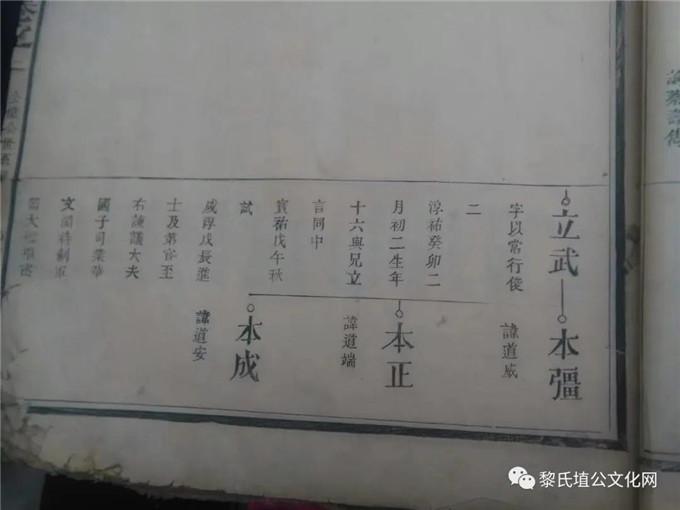 立武
本彊
字以常行俊
二
諱道威
淳祐癸卯二
月初二生年
十六與兄立
言同中
寳祐戊午秋
試
咸淳戊辰進
士及第官至
右諫議大夫
國子司業華
文閣待制軍
本正
諱道端
本成
諱道安
黎氏埴公文化网